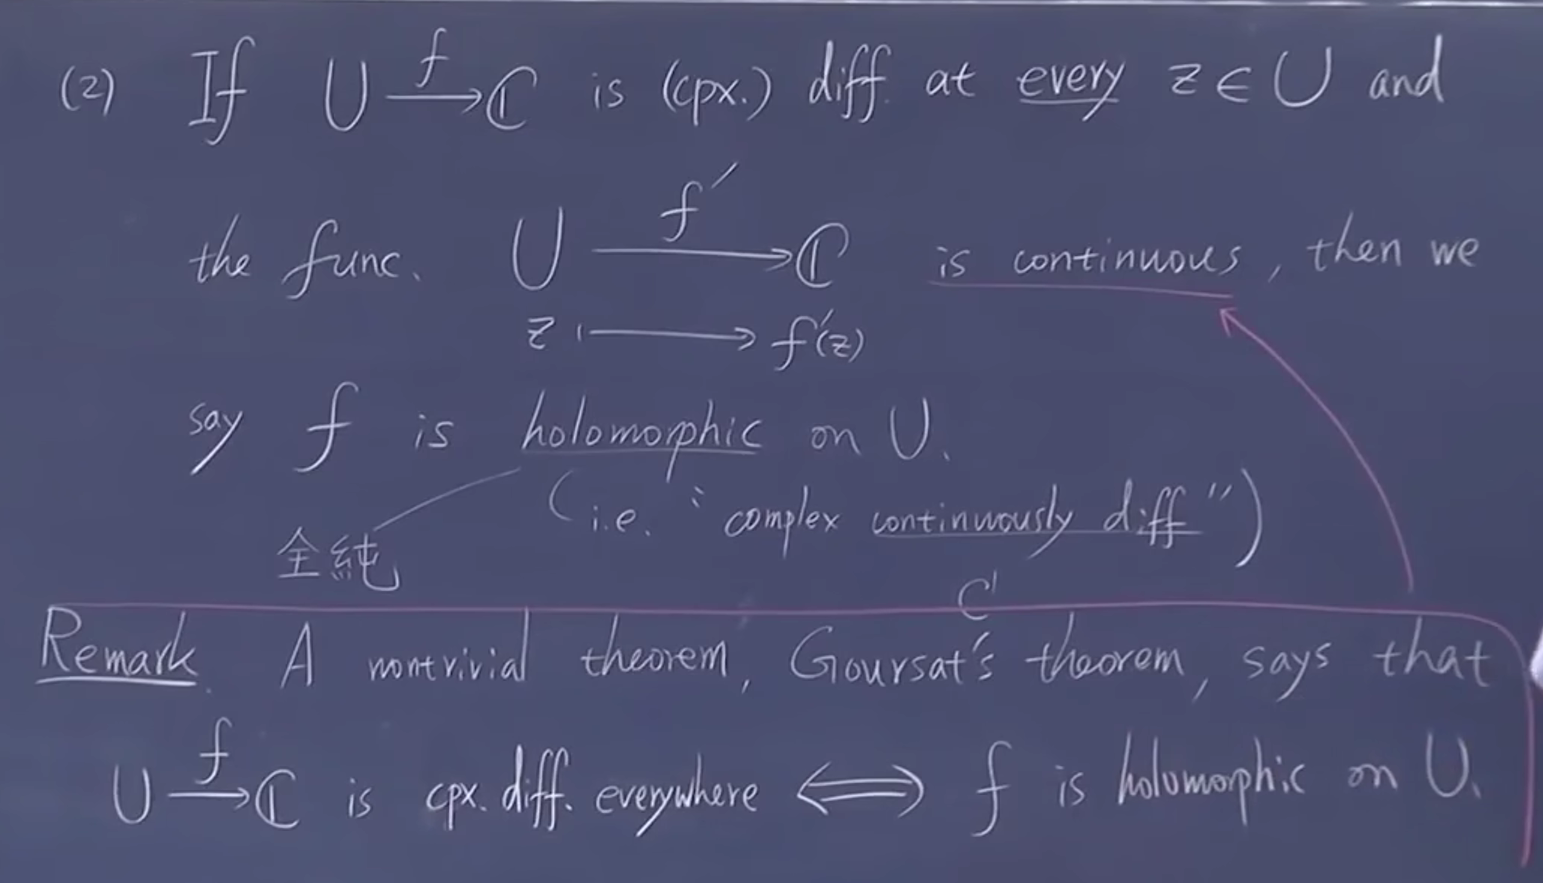 (2) If U —f→ ℂ is (cpx.) diff. at every z ∈ U and
the func. U —f′→ ℂ is continuous, then we
z ⟼ f′(z)
say f is holomorphic on U.
(i.e. "complex continuously diff")
全純
C¹
Remark. A nontrivial theorem, Goursat's theorem, says that
U —f→ ℂ is cpx. diff. everywhere ⟺ f is holomorphic on U.